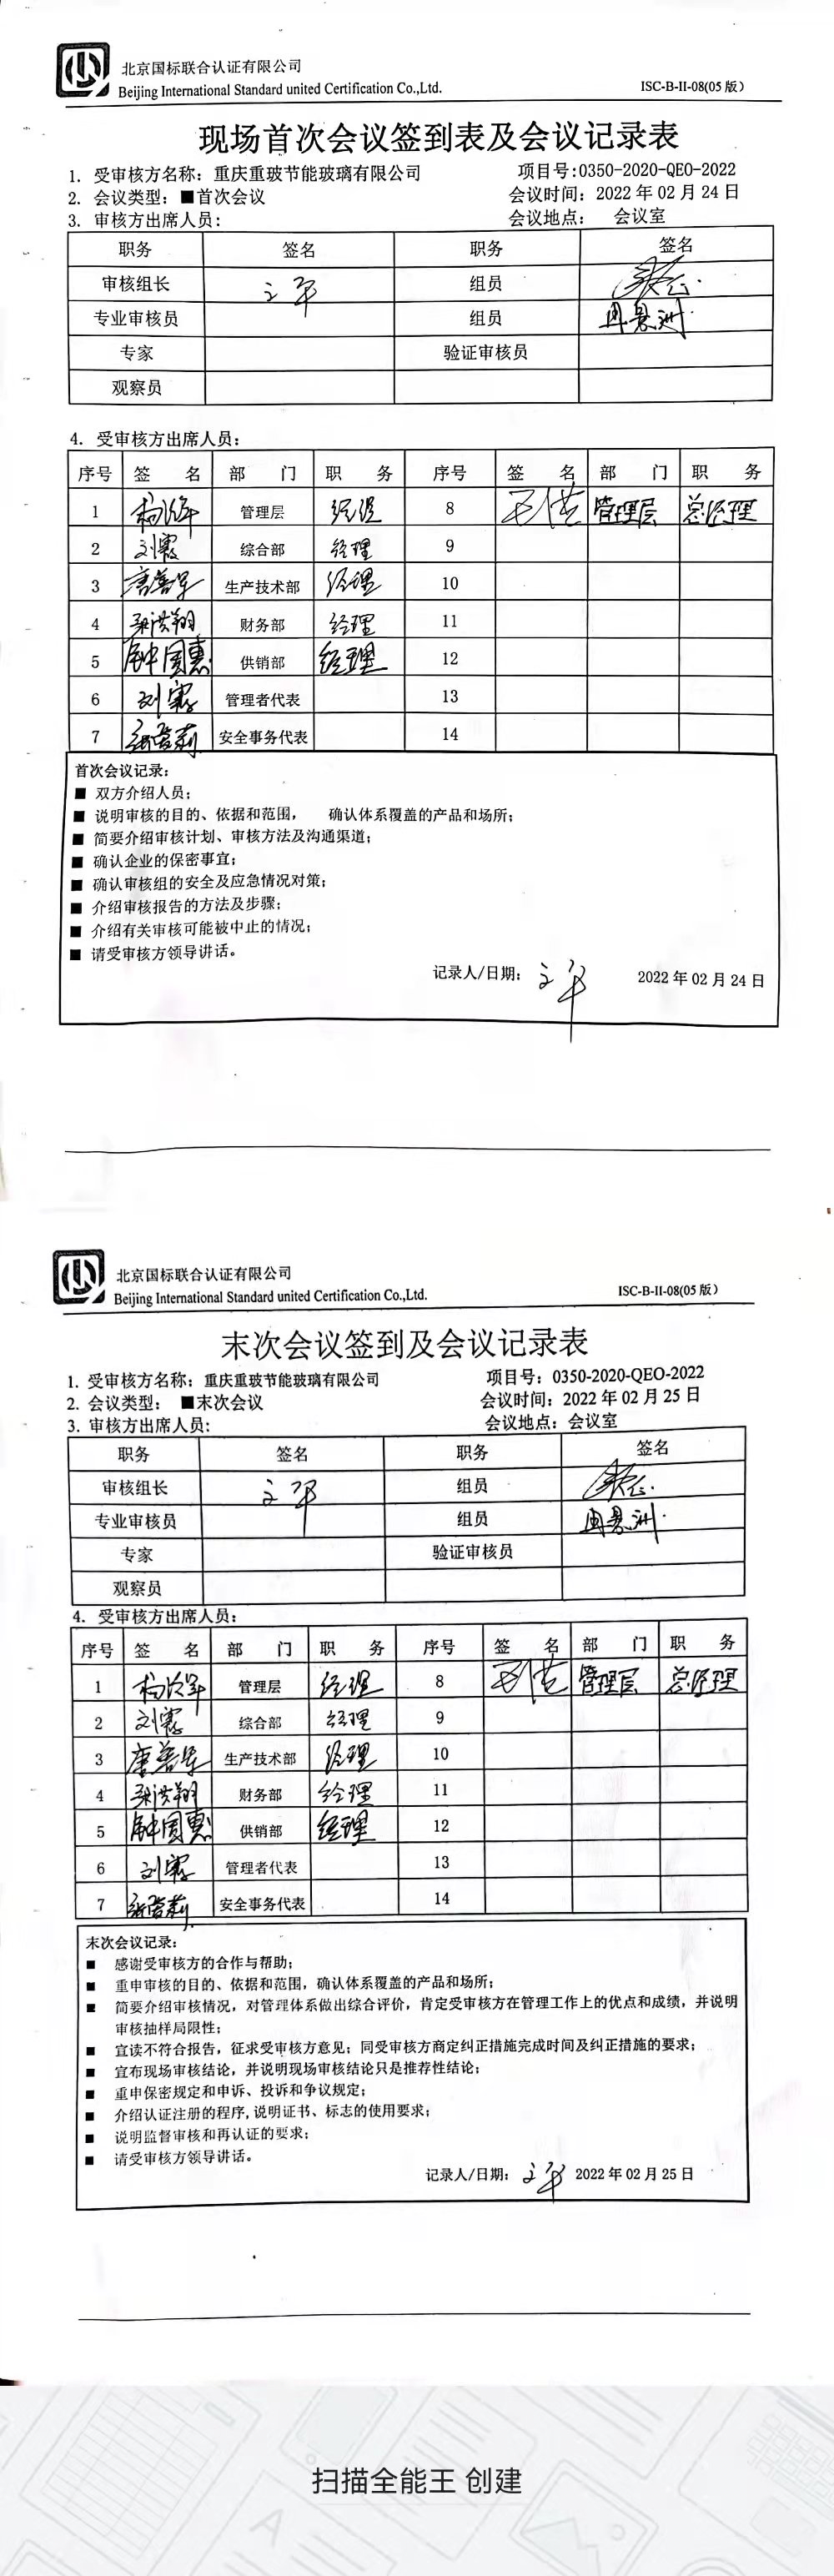 北京国标联合认证有限公司
Beijing International Standard united Certification Co.,Ltd. ISC-B-II-08(05 版)
现场首次会议签到表及会议记录表
1. 受审核方名称：重庆重玻节能玻璃有限公司 项目号:0350-2020-QEO-2022
2. 会议类型：■首次会议 会议时间：2022 年 02 月 24 日
3. 审核方出席人员: 会议地点： 会议室
职务 签名 职务 签名
审核组长 文平 组员
专业审核员 组员 周景洲
专家 验证审核员
观察员
4. 受审核方出席人员:
序号 签 名 部 门 职 务 序号 签 名 部 门 职 务
1 管理层 经理 8 管理层 总经理
2 刘霞 综合部 经理 9
3 唐善军 生产技术部 经理 10
4 洪翔 财务部 经理 11
5 钟国惠 供销部 经理 12
6 刘霞 管理者代表 13
7 安全事务代表 14
首次会议记录:
■ 双方介绍人员;
■ 说明审核的目的、依据和范围， 确认体系覆盖的产品和场所;
■ 简要介绍审核计划、审核方法及沟通渠道;
■ 确认企业的保密事宜;
■ 确认审核组的安全及应急情况对策;
■ 介绍审核报告的方法及步骤;
■ 介绍有关审核可能被中止的情况;
■ 请受审核方领导讲话。
记录人/日期: 文平 2022 年 02 月 24 日
北京国标联合认证有限公司
Beijing International Standard united Certification Co.,Ltd. ISC-B-II-08(05 版)
末次会议签到及会议记录表
1. 受审核方名称：重庆重玻节能玻璃有限公司 项目号：0350-2020-QEO-2022
2. 会议类型： ■末次会议 会议时间：2022 年 02 月 25 日
3. 审核方出席人员: 会议地点：会议室
职务 签名 职务 签名
审核组长 文平 组员
专业审核员 组员 周景洲
专家 验证审核员
观察员
4. 受审核方出席人员:
序号 签 名 部 门 职 务 序号 签 名 部 门 职 务
1 管理层 经理 8 管理层 总经理
2 刘霞 综合部 经理 9
3 唐善军 生产技术部 经理 10
4 洪翔 财务部 经理 11
5 钟国惠 供销部 经理 12
6 刘霞 管理者代表 13
7 安全事务代表 14
末次会议记录:
■ 感谢受审核方的合作与帮助;
■ 重申审核的目的、依据和范围，确认体系覆盖的产品和场所;
■ 简要介绍审核情况，对管理体系做出综合评价，肯定受审核方在管理工作上的优点和成绩，并说明
审核抽样局限性;
■ 宣读不符合报告，征求受审核方意见；同受审核方商定纠正措施完成时间及纠正措施的要求;
■ 宣布现场审核结论，并说明现场审核结论只是推荐性结论;
■ 重申保密规定和申诉、投诉和争议规定;
■ 介绍认证注册的程序,说明证书、标志的使用要求;
■ 说明监督审核和再认证的要求;
■ 请受审核方领导讲话。
记录人/日期: 文平 2022 年 02 月 25 日
扫描全能王 创建